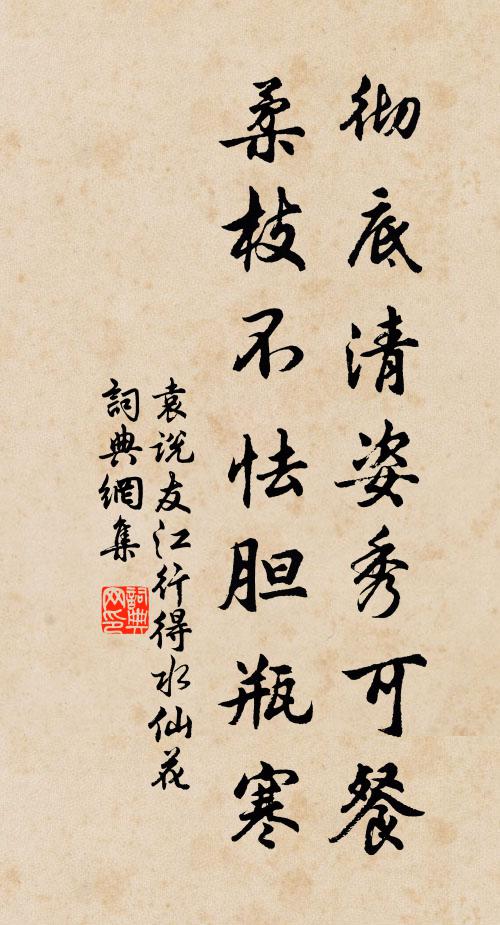 彻底清姿秀可餐
柔枝不怯胆瓶寒
袁说友江行得水仙花
詞典網集
詞典
网印